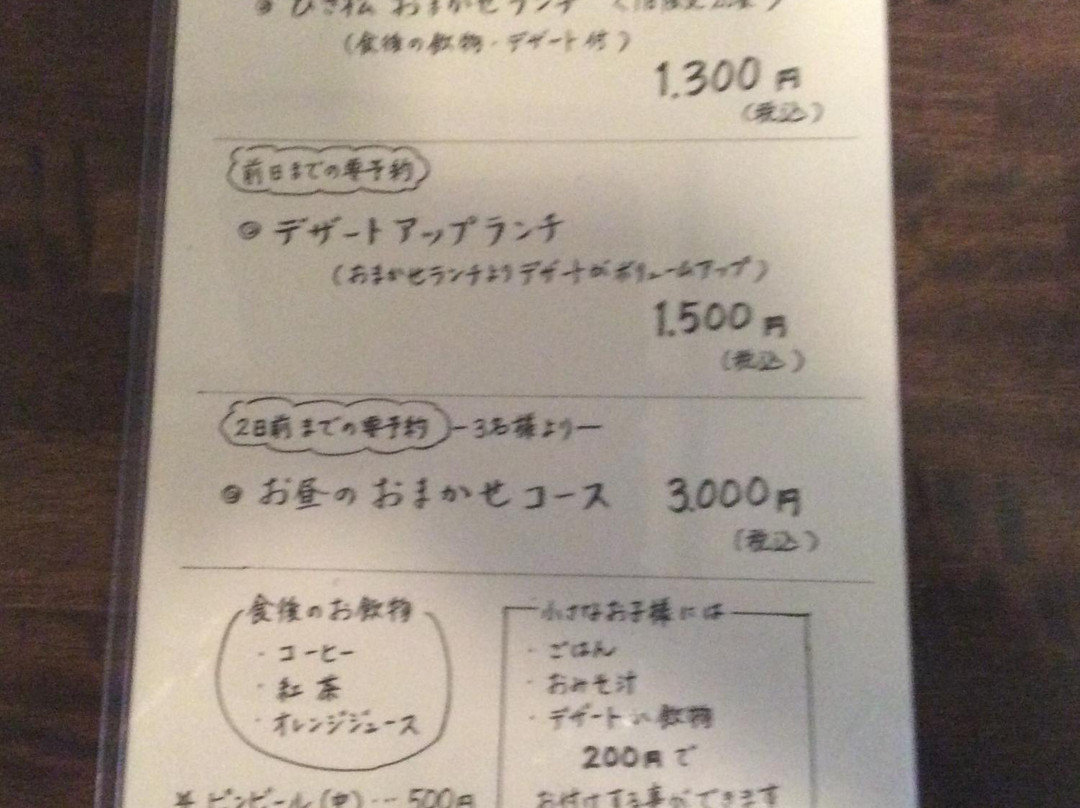 おまかせランチ
(食後の飲物・デザート付)
1.300円
(税込)
前日までの要予約
デザートアップランチ
(おまかせランチよりデザートがボリュームアップ)
1.500円
(税込)
2日前までの要予約 -3名様より-
お昼のおまかせコース 3.000円
(税込)
食後のお飲物
・コーヒー
・紅茶
・オレンジジュース
小さなお子様には
・ごはん
・おみそ汁
・デザート 飲物
200円で
お付けする事ができます
ビンビール(中)…500円